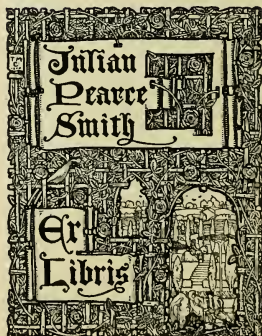 Julian
Pearce
Smith
Ex
Libris